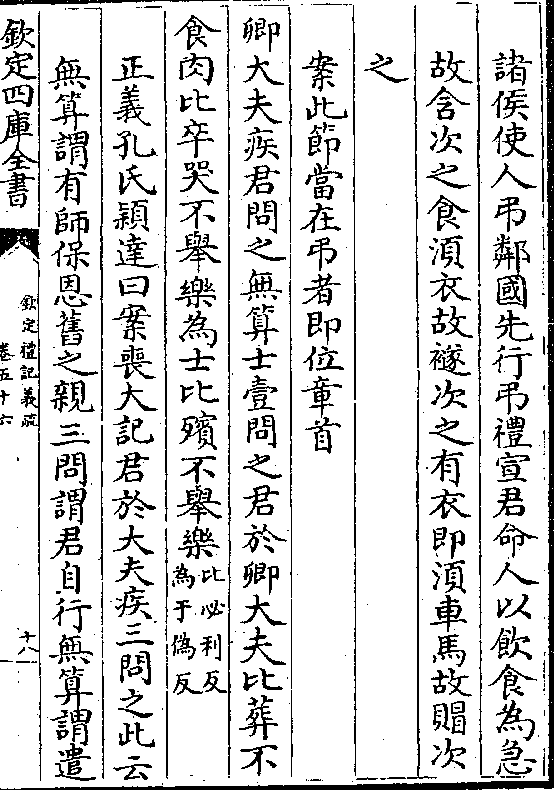 諸侯使人弔鄰國先行弔禮宣君命人以飲食為急
故含次之食湏衣故襚次之有衣即湏車馬故賵次
之
案此節當在弔者即位章首
卿大夫疾君問之無算士壹問之君於卿大夫比葬不
食肉比卒哭不舉樂為士比殯不舉樂比必利反
為于偽反
正義孔氏穎達曰案喪大記君於大夫疾三問之此云
無算謂有師保恩舊之親三問謂君自行無算謂遣
欽定四庫全書
欽定禮記義疏
卷五十六
十八